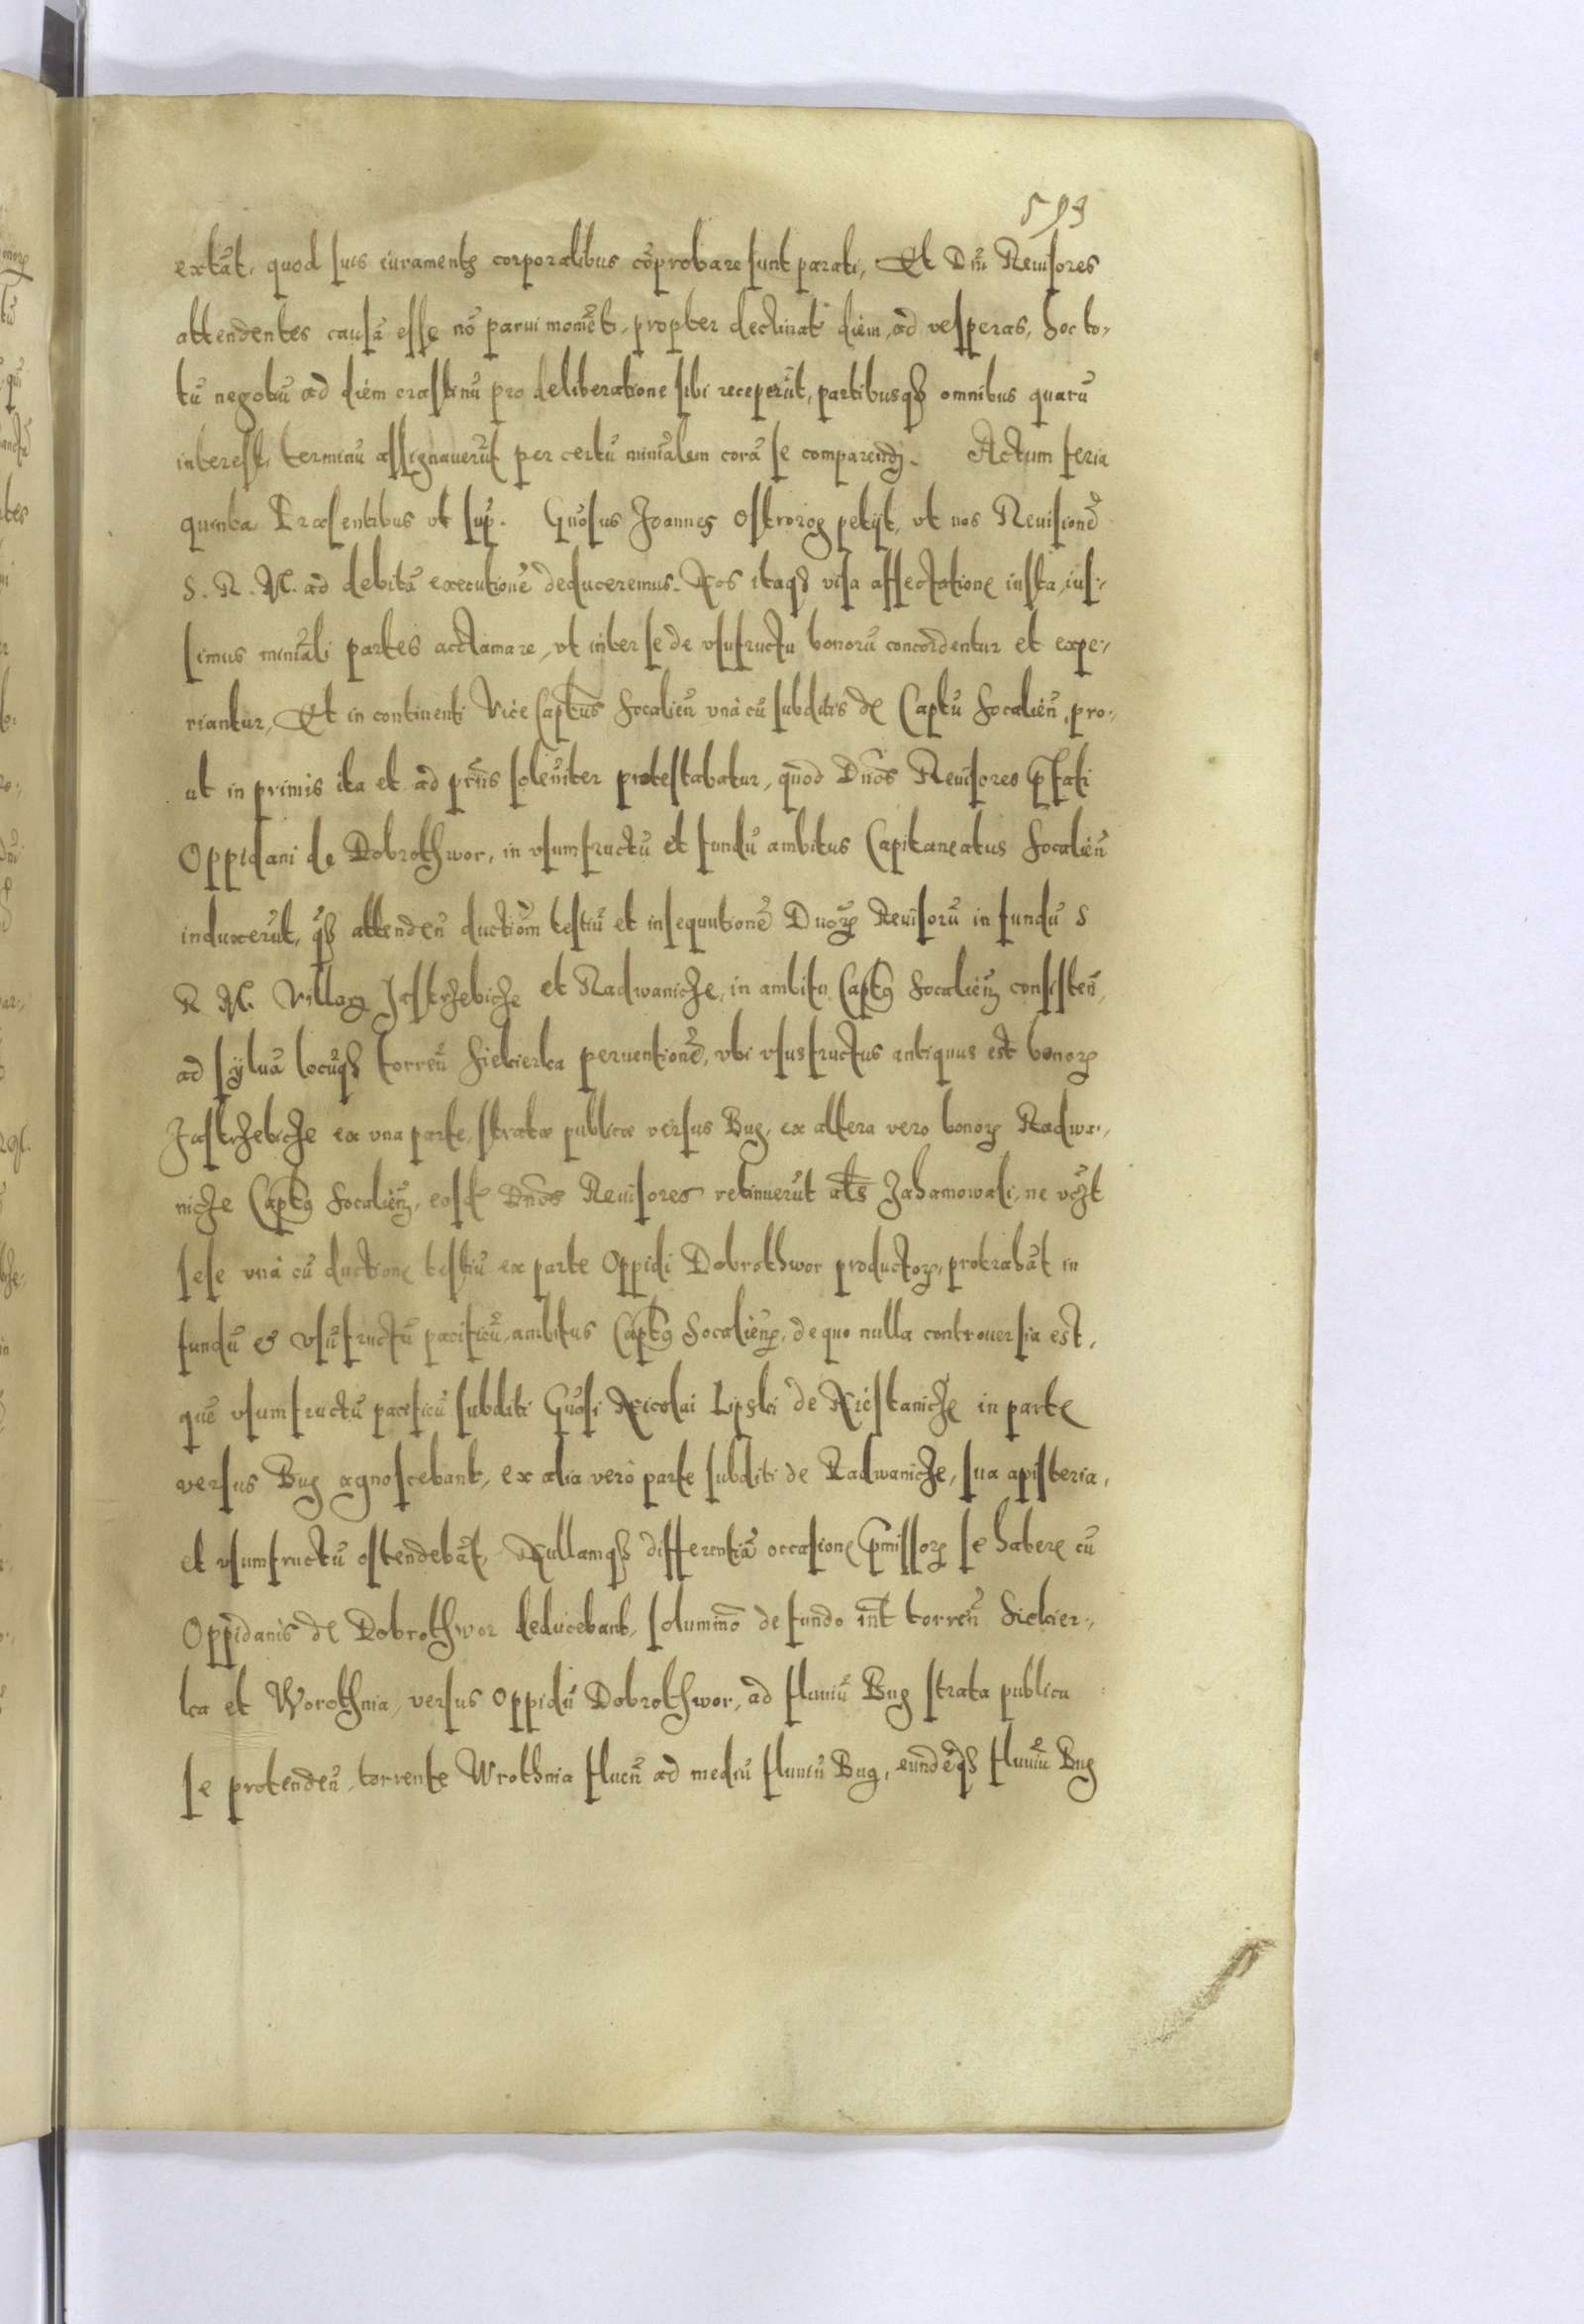 593
extāt, quod suis iuramentꝭ corporalibus cōprobare sunt parati, Et Dn̄i Reuisores
attendentes causā esse nō parui momēt, propter declinat diem, ad vesperas, hoc to-
tū negotiū ad diem crastinū pro deliberatione sibi receperūt, partibusqꝫ omnibus quarū
interest, terminū assignauerūt per certū minīalem corā se comparendj. Actum feria
quinta Præsentibus vt sup. Gn̄osus Joannes Ostrorog petijt, vt nos Reuisionē
S. R. M. ad debitā executionē deduceremus. Nos itaqꝫ visa affectatione iusta, ius-
simus miniāli partes acclamare, vt inter se de vsufructu bonorū concordentur et expe-
riantur, Et in continenti Vice Captūs Socalien̄ vnà cū subditis de Captū Socalien̄, pro-
ut in primis ita et ad prn̄s solen̄iter protestabatur, quod Dn̄os Reuisores p̄fati
Oppidani de Dobrothwor, in vsumfructū et fundū ambitus Capitaneatus Socalien̄
induxerūt, qꝫ attenden̄ ductiōm testiū et insequutionē Dn̄orꝫ Reuisorū in fundū S
R M. Villarꝫ Jastrzebicze et Radwanicze, in ambitu Captꝰ Socalien̄ consisten̄,
ad syluā locūqꝫ torren̄ Siekierka peruentionē, vbi vsusfructus antiquus est bonorꝫ
Jastrzebicze ex vna parte, stratæ publicæ versus Bug, ex altera vero bonorꝫ Radwa-
nicze Captꝰ Socalien̄, eosd Dn̄os Reuisores retinuerūt als Zahamowali, ne
sese vnà cū ductione testiū ex parte Oppidi Dobrothwor productorꝫ, protrahāt in
fundū & vsūfructū pacificū, ambitus Captꝰ Socalien̄, de quo nulla controuersia est,
quē vsumfructū pacificū subditi Gn̄osi Nicolai Lipski de Niestanicze in parte
versus Bug agnoscebant, ex alia verò parte subditi de Radwanicze, sua apisteria,
et vsumfructū ostendebāt, Nullamqꝫ differentiā occasione p̄missorꝫ se habere cū
Oppidanis de Dobrothwor deducebant, solummō de fundo int̄ torren̄ Siekier-
ka et Worothnia, versus Oppidū Dobrothwor, ad fluuiū Bug strata publica
se protenden̄, torrente Wrothnia fluen̄ ad mediū fluuiū Bug, eundēqꝫ fluuiū Bug